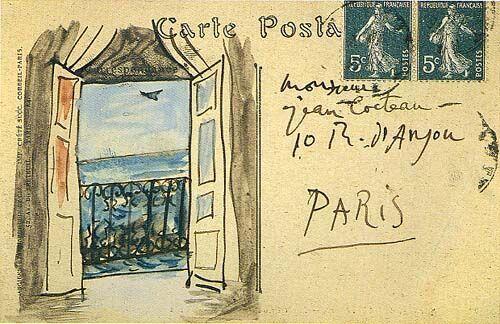 Carte Posta
REPUBLIQUE FRANÇAISE
5c POSTES
REPUBLIQUE FRANÇAISE
5c POSTES
monsieur
jean Cocteau
10 R. d'Anjou
PARIS